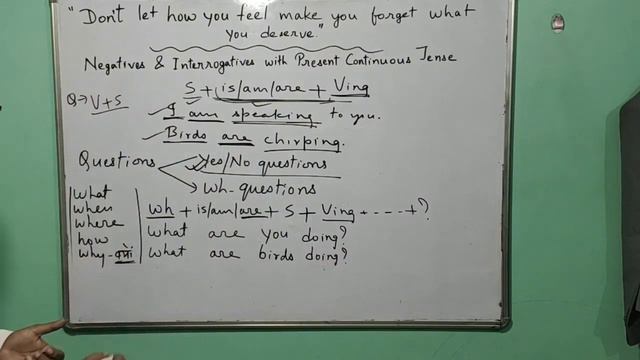 "Don't let how you feel make you forget what
you deserve."
Negatives & Interrogatives with Present Continuous Tense
S + is/am/are + Ving
Q→ V+S
I am speaking to you.
Birds are chirping.
Questions
Yes/No questions
Wh-questions
what
when
where
how
why - क्यों
wh + is/am/are + S + Ving + ---- + ?
What are you doing?
What are birds doing?